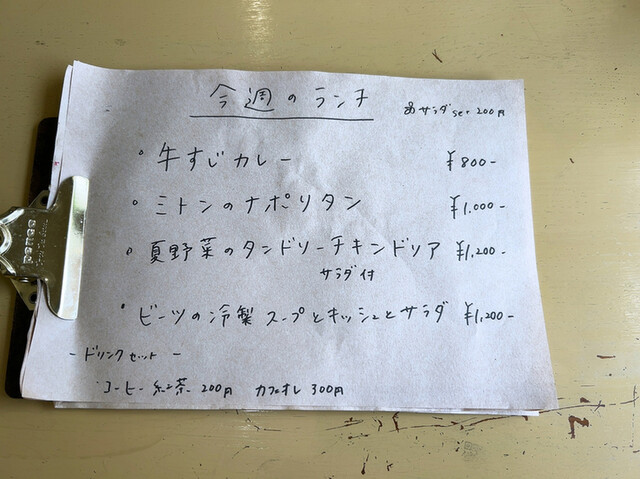 今週のランチ
サラダset 200円
・牛すじカレー ¥800-
・ミトンのナポリタン ¥1,000-
・夏野菜のタンドリーチキンドリア ¥1,200-
サラダ付
・ビーツの冷製スープとキッシュとサラダ ¥1,200-
- ドリンクセット -
コーヒー 紅茶 200円 カフェオレ 300円